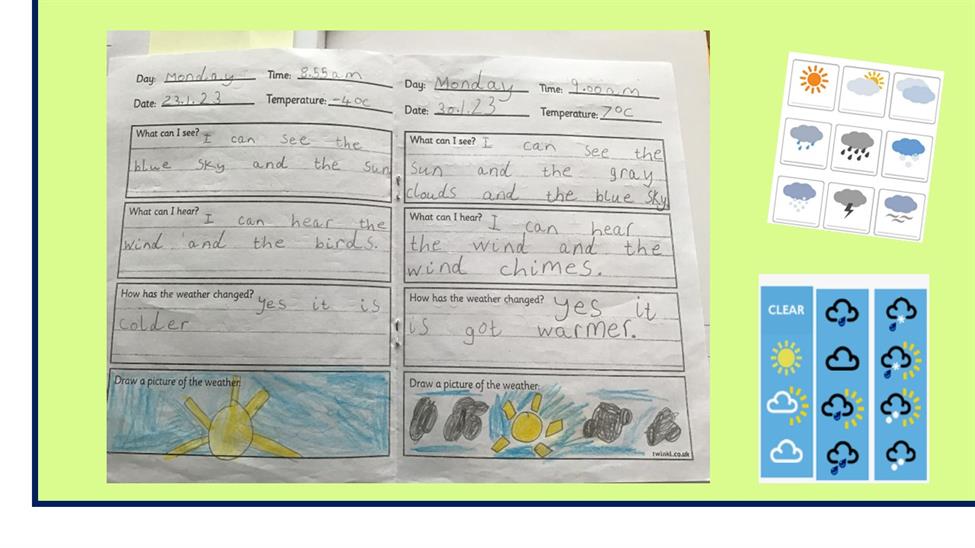 Day: Monday Time: 8.55 a m
Date: 23.1.23 Temperature: -4°c
What can I see? I can see the
blue sky and the sun
What can I hear? I can hear the
wind and the birds.
How has the weather changed? yes it is
colder
Draw a picture of the weather.
Day: Monday Time: 9.00 a.m
Date: 30.1.23 Temperature: 7°C
What can I see? I can see the
sun and the gray
clouds and the blue sky
What can I hear? I can hear
the wind and the
wind chimes.
How has the weather changed? yes it
is got warmer.
Draw a picture of the weather.
twinkl.co.uk
CLEAR